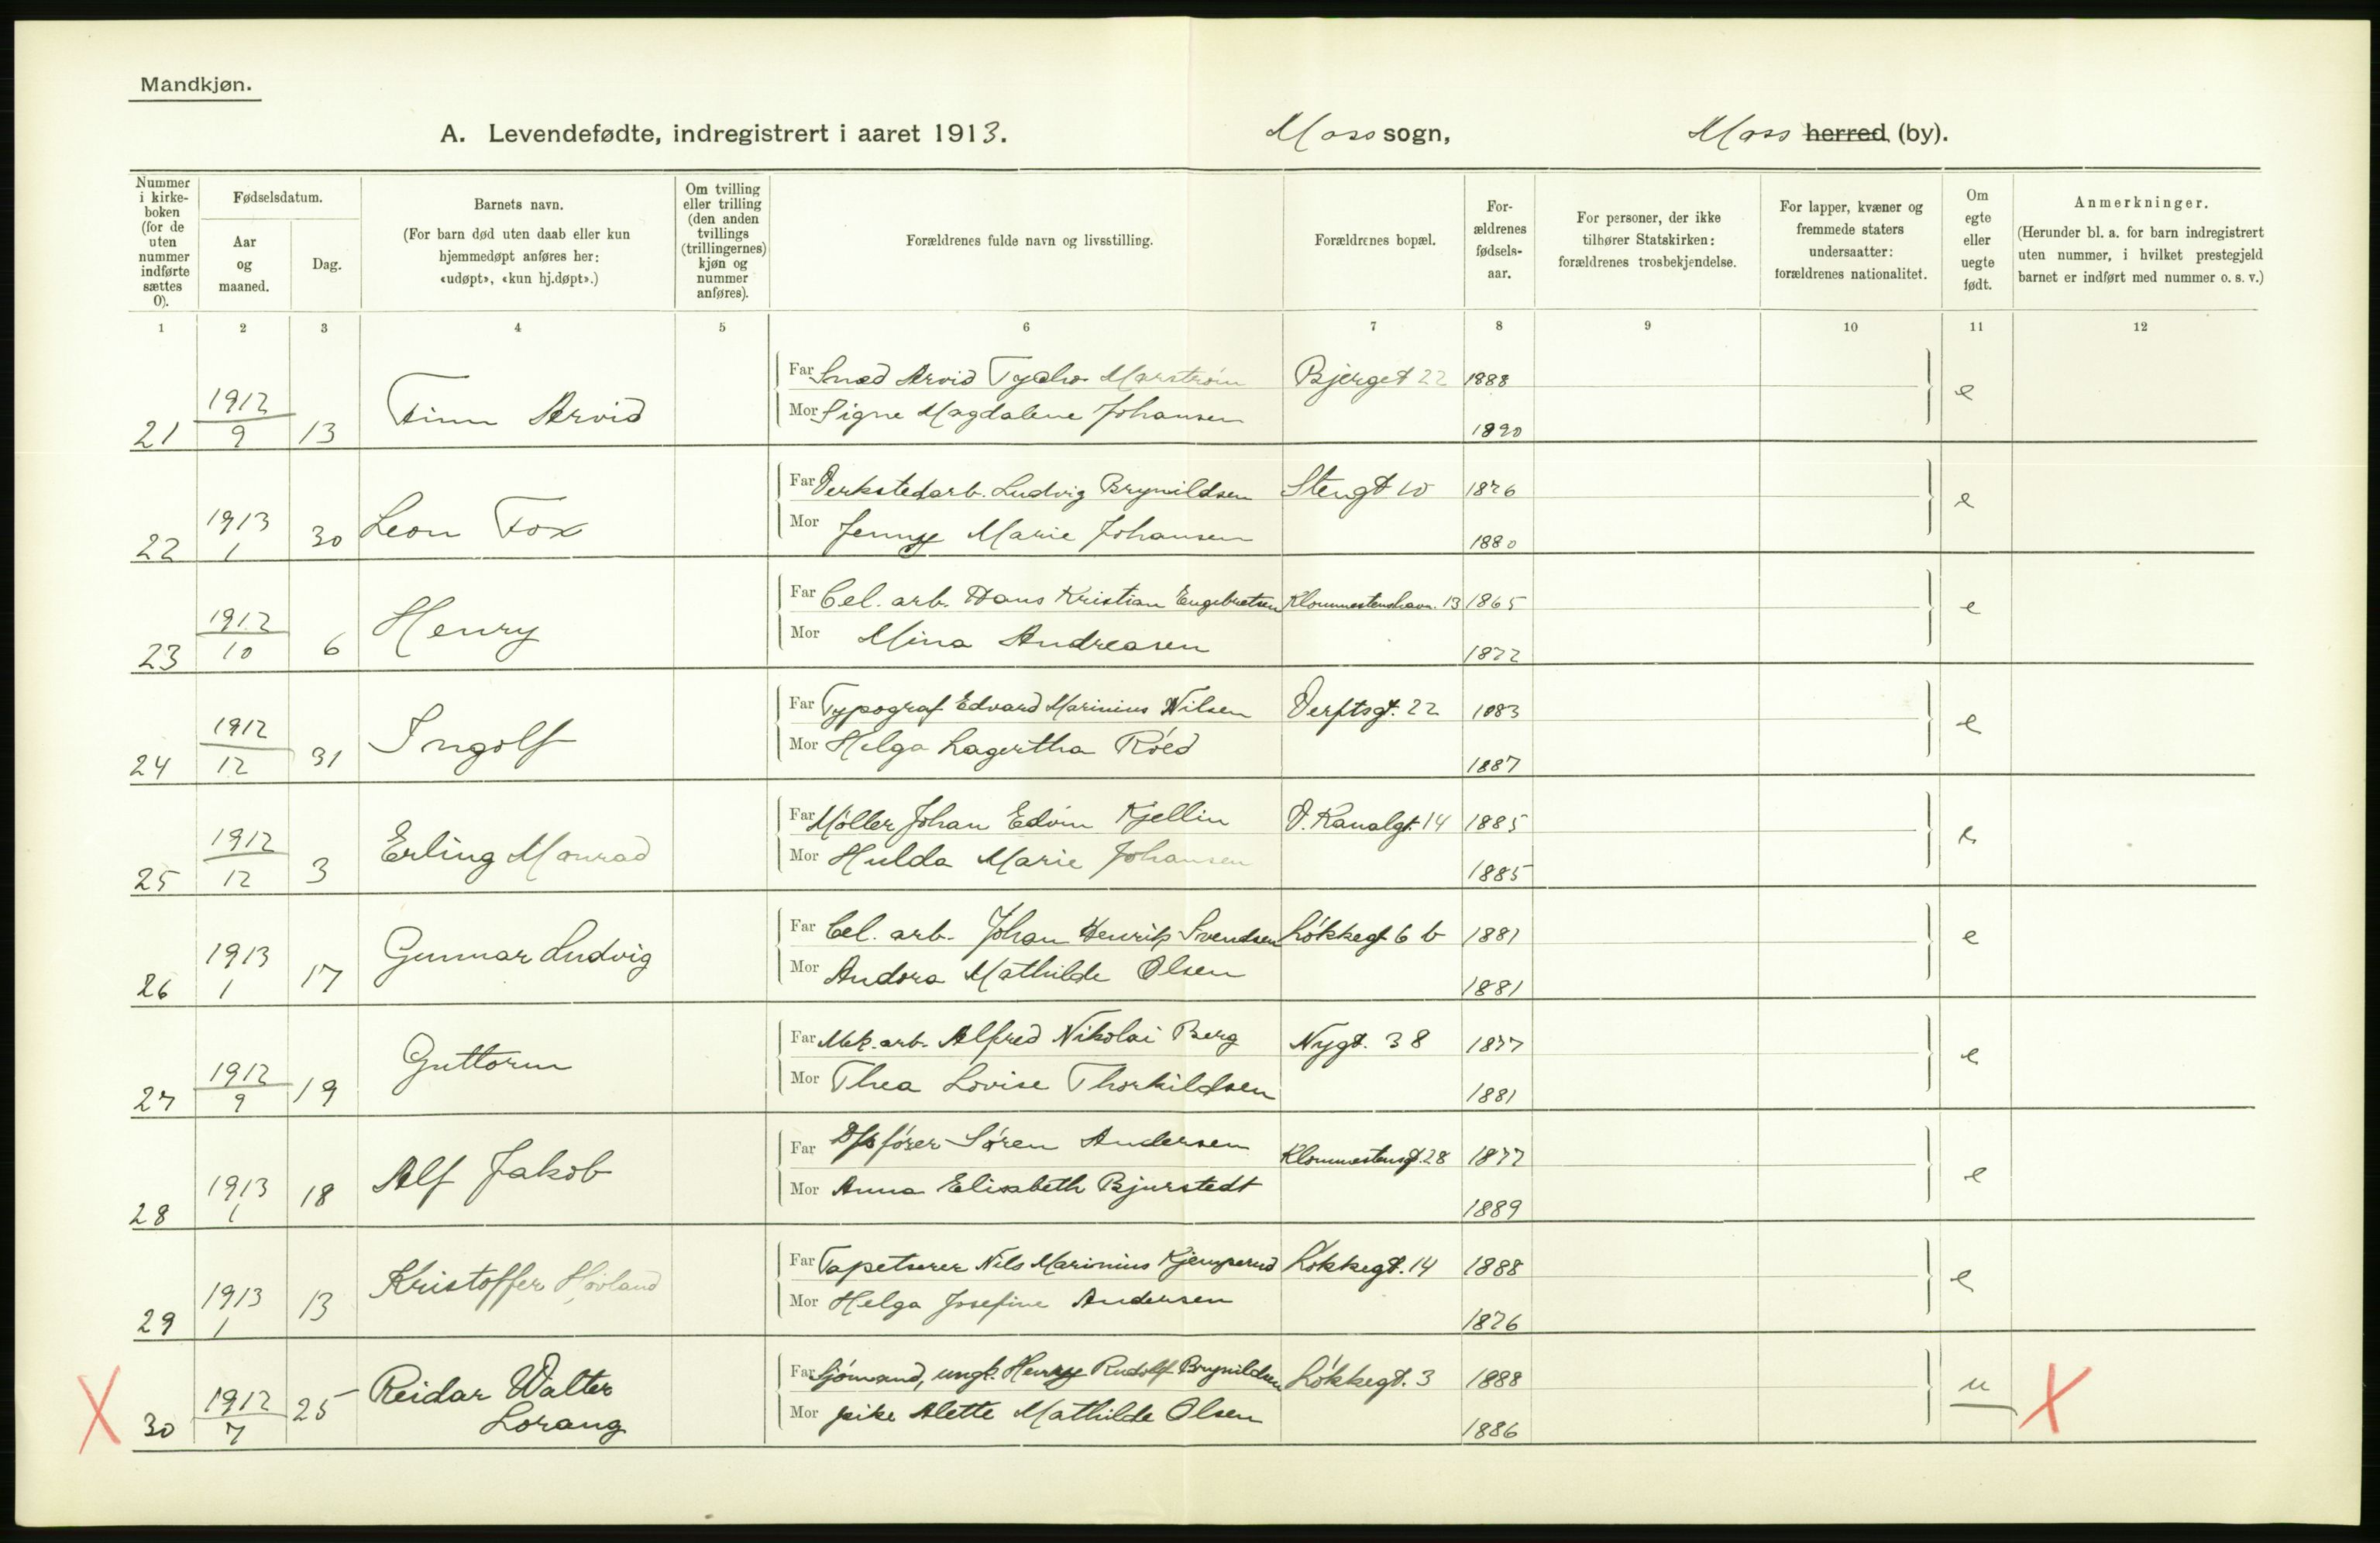 Mandkjøn.
A. Levendefødte, indregistrert i aaret 1913. Moss sogn, Moss herred (by).
Nummer i kirke-boken (for de uten nummer indførte sættes 0).
Fødselsdatum.
Aar og maaned.
Dag.
Barnets navn.
(For barn død uten daab eller kun hjemmedøpt anføres her: «udøpt», «kun hj.døpt».)
Om tvilling eller trilling (den anden tvillings (trillingernes) kjøn og nummer anføres).
Forældrenes fulde navn og livsstilling.
Forældrenes bopæl.
For-ældrenes fødsels-aar.
For personer, der ikke tilhører Statskirken: forældrenes trosbekjendelse.
For lapper, kvæner og fremmede staters undersaatter: forældrenes nationalitet.
Om egte eller uegte født.
Anmerkninger.
(Herunder bl. a. for barn indregistrert uten nummer, i hvilket prestegjeld barnet er indført med nummer o. s. v.)
1 2 3 4 5 6 7 8 9 10 11 12
21 1912 9 13 Finn Arvid
Far Smed Arvid Tycho Marstrøm Bjerget 22 1888 e
Mor Signe Magdalene Johansen 1890
22 1913 1 30 Leon Fox
Far Verkstedarb. Ludvig Brynildsen Stengt 10 1876 e
Mor Jenny Marie Johansen 1880
23 1912 10 6 Henry
Far Cel. arb. Hans Kristian Engebretsen 13 1865 e
Mor Mina Andreasen 1872
24 1912 12 31 Ingolf
Far Typograf Edvard Marinius Nilsen Verftsgt. 22 1883 e
Mor Helga Lagertha Röed 1887
25 1912 12 3 Erling Monrad
Far Möller Johan Edvin Kjellin V. Kanalgt. 14 1885 e
Mor Hulda Marie Johansen 1885
26 1913 1 17 Gunnar Ludvig
Far Cel. arb. Johan Henrik Svendsen Lökkegt 6 b 1881 e
Mor Andora Mathilde Olsen 1881
27 1912 9 19 Guttorm
Far Mek. arb. Alfred Nikolai Berg Nygt. 38 1877 e
Mor Thea Lovise Thorkildsen 1881
28 1913 1 18 Alf Jakob
Far Sören Andersen Klommestensgt. 28 1877 e
Mor Anna Elisabeth Bjurstedt 1889
29 1913 1 13 Kristoffer Hovland
Far Tapetserer Nils Marinius Kjemperud Lökkegt. 14 1888 e
Mor Helga Josefine Andersen 1876
X 30 1912 7 25 Reidar Walter
Lorang
Far Sjömand, ungk. Henry Rudolf Brynildsen Lökkegt. 3 1888 u X
Mor pike Alette Mathilde Olsen 1886